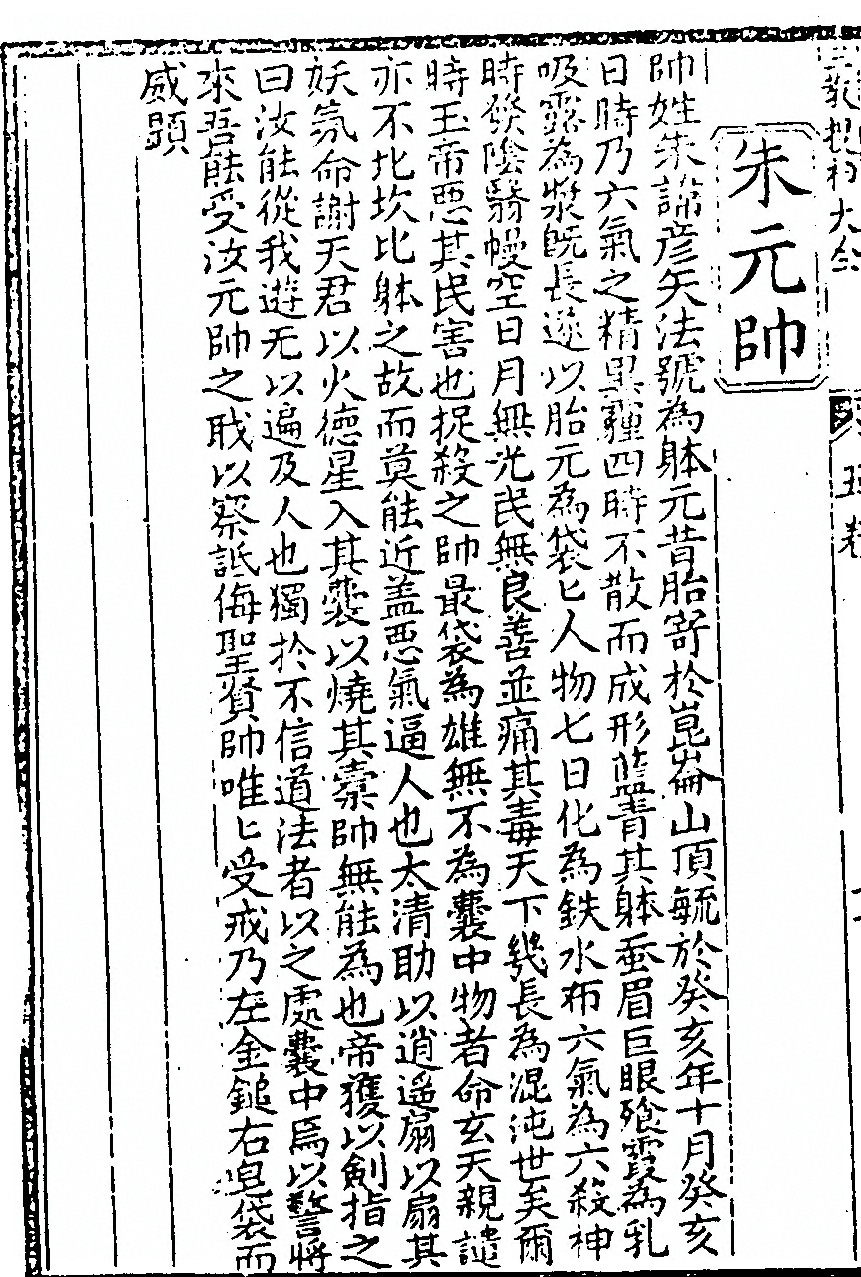 三教搜神大全
五卷
朱元帥
帥姓朱諱彦矢法號為躰元昔胎寄於崑崙山頂毓於癸亥年十月癸亥
日時乃六氣之精異霾四時不散而成形藍青其躰蚕眉巨眼飱霞為乳
吸露為漿既長遂以胎元為袋匕人物七日化為鉄水布六氣為六殺神
時發陰翳幔空日月無光民無良善並痛其毒天下幾長為混沌世矣爾
時玉帝惡其民害也捉殺之帥最袋為雄無不為囊中物者命玄天親譴
亦不比坎比躰之故而莫能近盖惡氣逼人也太清助以逍遥扇以扇其
妖氛命謝天君以火德星入其囊以燒其橐帥無能為也帝獲以剣指之
曰汝能從我遊无以遍及人也獨於不信道法者以之處囊中焉以警將
來吾能受汝元帥之戢以察詆侮聖賢帥唯匕受戒乃左金鎚右皂袋而
威顕